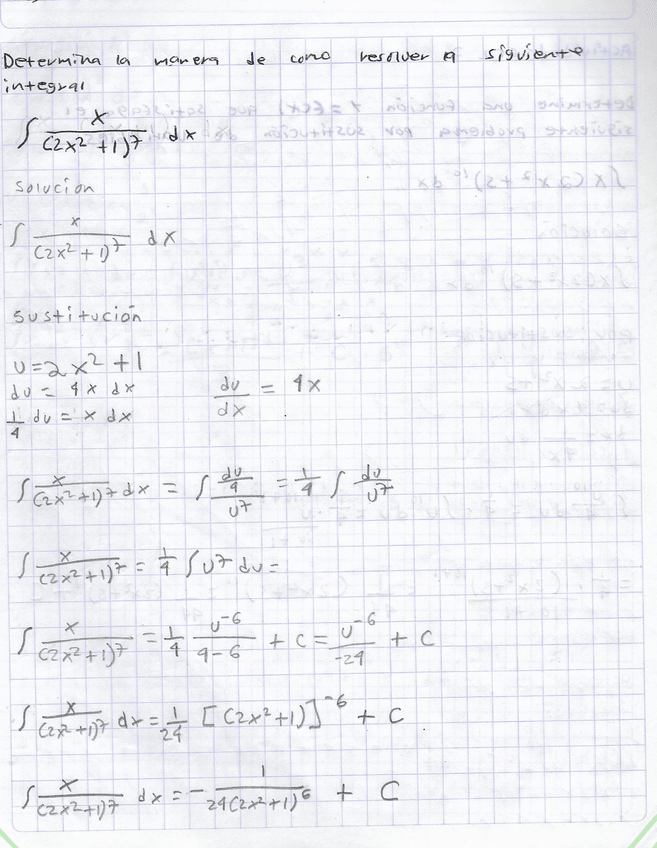 Determina la manera de como resolver la siguiente
integral
∫ x/(2x² + 1)⁷ dx
solución
∫ x/(2x² + 1)⁷ dx
sustitución
u = 2x² + 1
du = 4x dx    du/dx = 4x
1/4 du = x dx
∫ x/(2x² + 1)⁷ dx = ∫ (du/4)/u⁷ = 1/4 ∫ du/u⁷
∫ x/(2x² + 1)⁷ = 1/4 ∫ u⁷ du =
∫ x/(2x² + 1)⁷ = 1/4 u⁻⁶/(4-6) + c = u⁻⁶/-24 + c
∫ x/(2x² + 1)⁷ dx = 1/24 [(2x²+1)]⁻⁶ + C
∫ x/(2x²+1)⁷ dx = - 1/24(2x²+1)⁶ + C